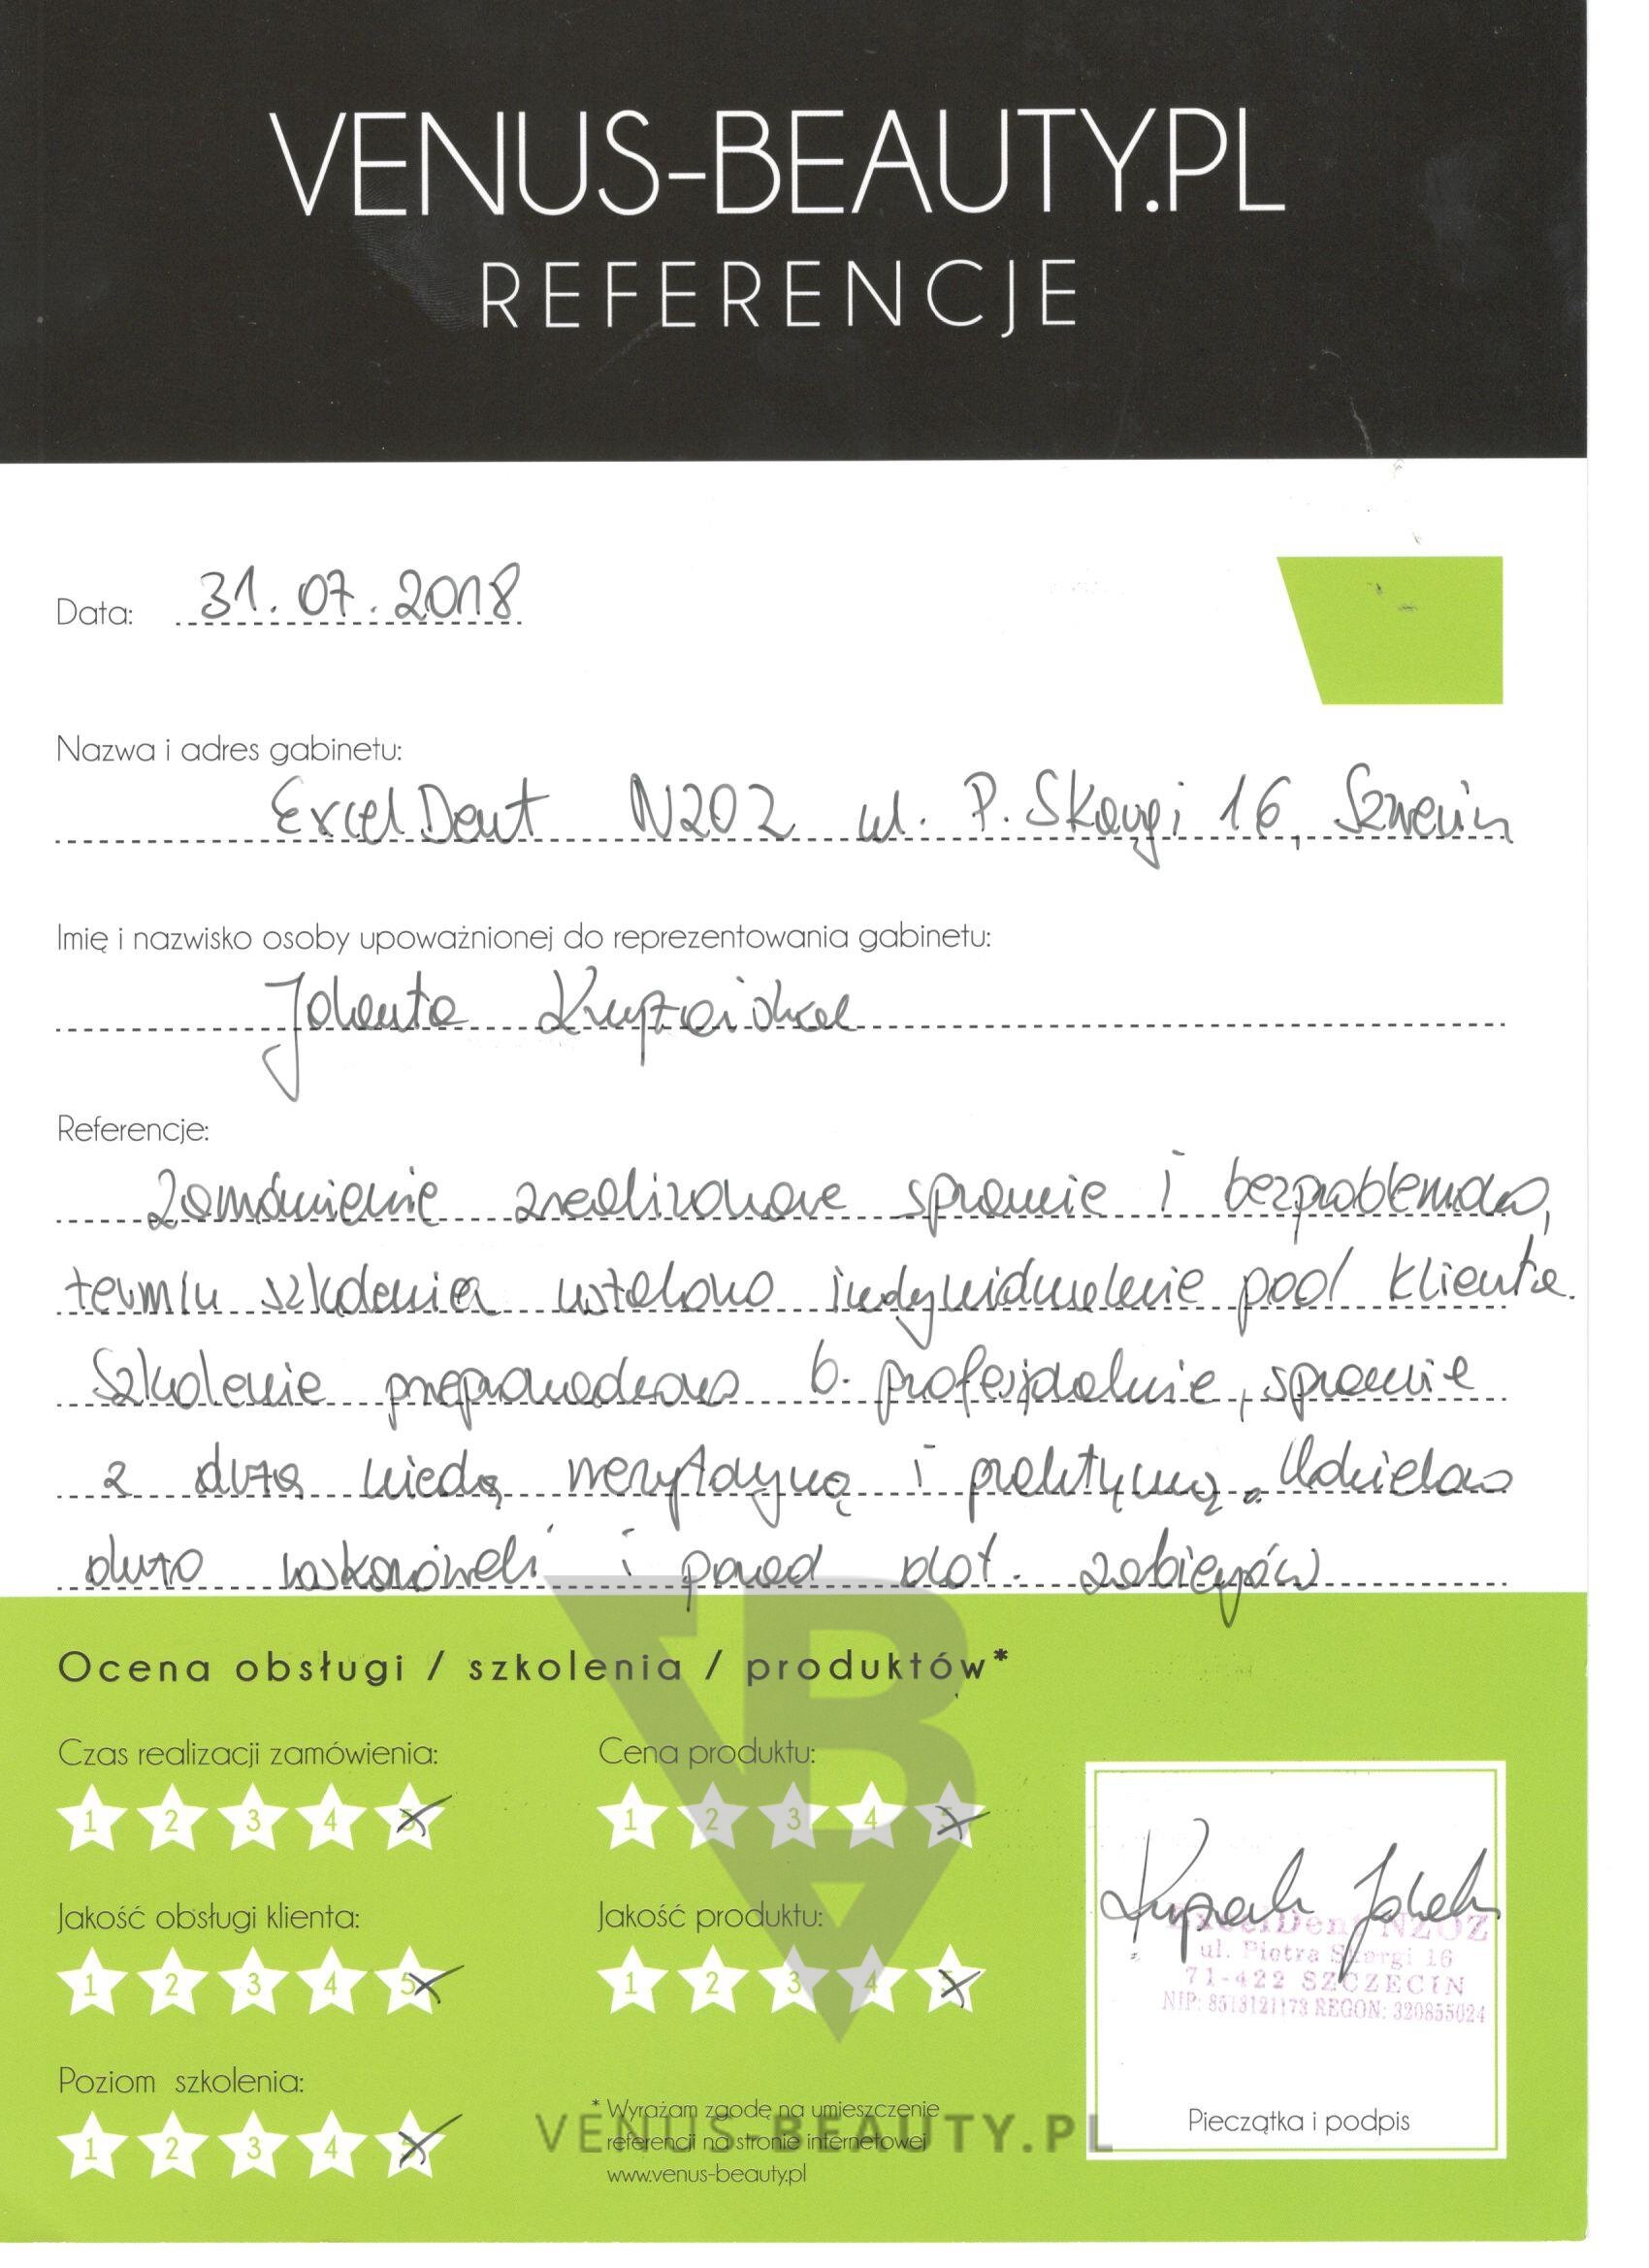 VENUS-BEAUTY.PL
REFERENCJE
Data: 31.07.2018
Nazwa i adres gabinetu:
ExcelDent NZOZ ul. P. Skargi 16, Szczecin
Imię i nazwisko osoby upoważnionej do reprezentowania gabinetu:
Jolanta
Referencje:
Zamówienie zrealizowane sprawnie i bezproblemowo,
termin szkolenia ustalono indywidualnie pod klienta.
Szkolenie przeprowadzono b. profesjonalnie, sprawnie
z dużą wiedzą merytoryczną i praktyczną. Udzielono
dużo wskazówek i porad dot. zabiegów
Ocena obsługi / szkolenia / produktów*
Czas realizacji zamówienia:
1 2 3 4 5
Cena produktu:
1 2 3 4 5
Jakość obsługi klienta:
1 2 3 4 5
Jakość produktu:
1 2 3 4 5
Poziom szkolenia:
1 2 3 4 5
* Wyrażam zgodę na umieszczenie
referencji na stronie internetowej
www.venus-beauty.pl
VENUS-BEAUTY.PL
ExcelDent NZOZ
ul. Piotra Skargi 16
71-422 SZCZECIN
NIP: 8513121173 REGON: 320855024
Pieczątka i podpis